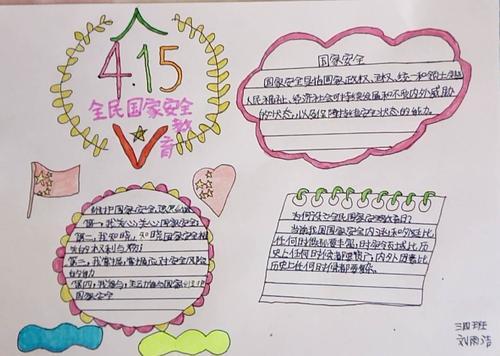 4.15
全民国家安全
教育
国家安全
国家安全是指国家政权、主权、统一和领土完整
人民福祉、经济社会可持续发展和不受内外威胁
的状态,以及保障持续安全状态的能力。
维护国家安全,
第一,我关心,关心国家安全
第二,我知晓,知晓国家安全相
关的权利与
第三,我掌握,掌握应对安全风险
的能力
第四,我参与,
国家安全
为何设立全民国家安全教育日?
当前我国国家安全内涵和外延比
任何时候都要丰富,时空领域比历
史上任何时候都要宽广,内外因素比
历史上任何时候都要复杂。
三四班
刘雨洁